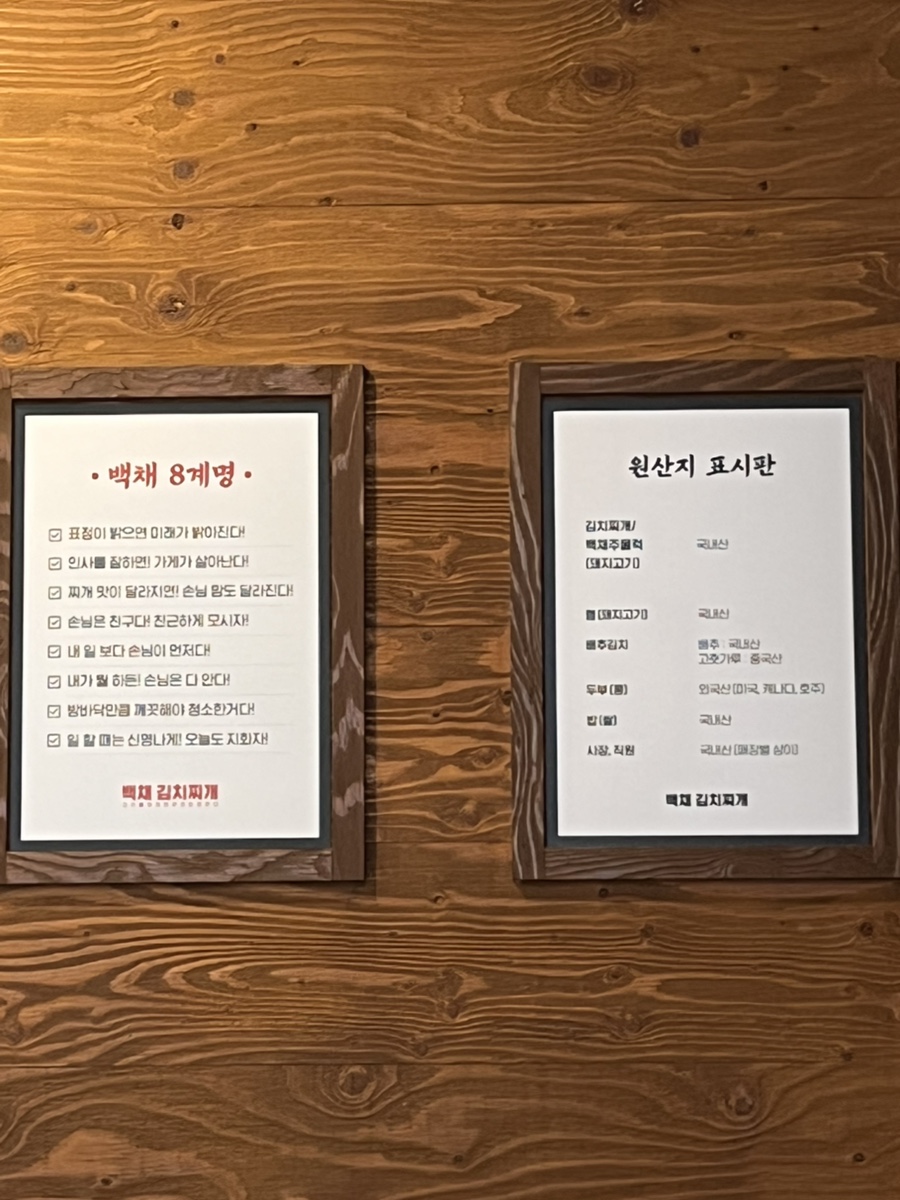 • 백채 8계명 •
표정이 밝으면 미래가 밝아진다!
인사를 잘하면! 가게가 살아난다!
찌개 맛이 달라지면! 손님 맘도 달라진다!
손님은 친구다! 친근하게 모시자!
내 일 보다 손님이 먼저다!
내가 뭘 하든! 손님은 다 안다!
밤바닥만큼 깨끗해야 청소한거다!
일 할 때는 신명나게! 오늘도 지화자!
백채 김치찌개
원산지 표시판
김치찌개/
백채주물럭 국내산
(돼지고기)
햄 (돼지고기) 국내산
배추김치 배추 : 국내산
고춧가루 : 중국산
두부 (콩) 외국산 (미국, 캐나다, 호주)
밥 (쌀) 국내산
사장, 직원 국내산 (매장별 상이)
백채 김치찌개